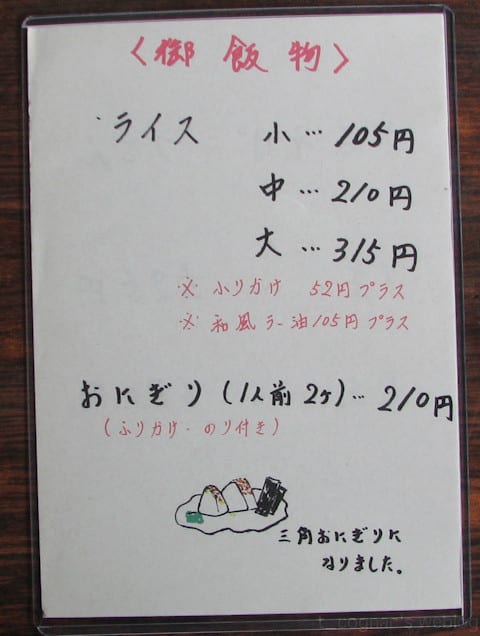 〈御飯物〉
・ライス 小…105円
中…210円
大…315円
※ ふりかけ 52円プラス
※ 和風ラー油105円プラス
おにぎり(1人前2ヶ)…210円
(ふりかけ・のり付き)
三角おにぎりに
なりました。